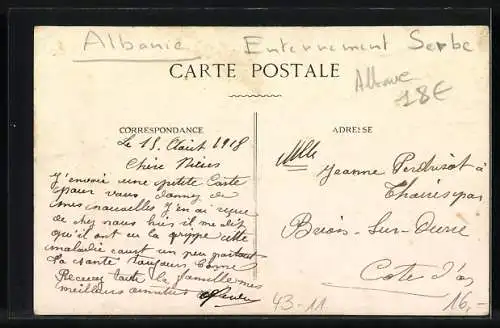 Albanie Enterrement Serbe
CARTE POSTALE
18€
CORRESPONDANCE
ADRESSE
Le 15 Août 1918
Chère
J'envoie une petite Carte
pour vous donner de
mes nouvelles J'en ai reçue
de chez nous hier il me dit
qu'il ont eu la grippe cette
maladie court un peu partout
La santé toujours bonne
Recevez toute la famille mes
meilleurs amitiés
Mlle
Jeanne à
par
Sur
Cote d'or
43-11
16,-